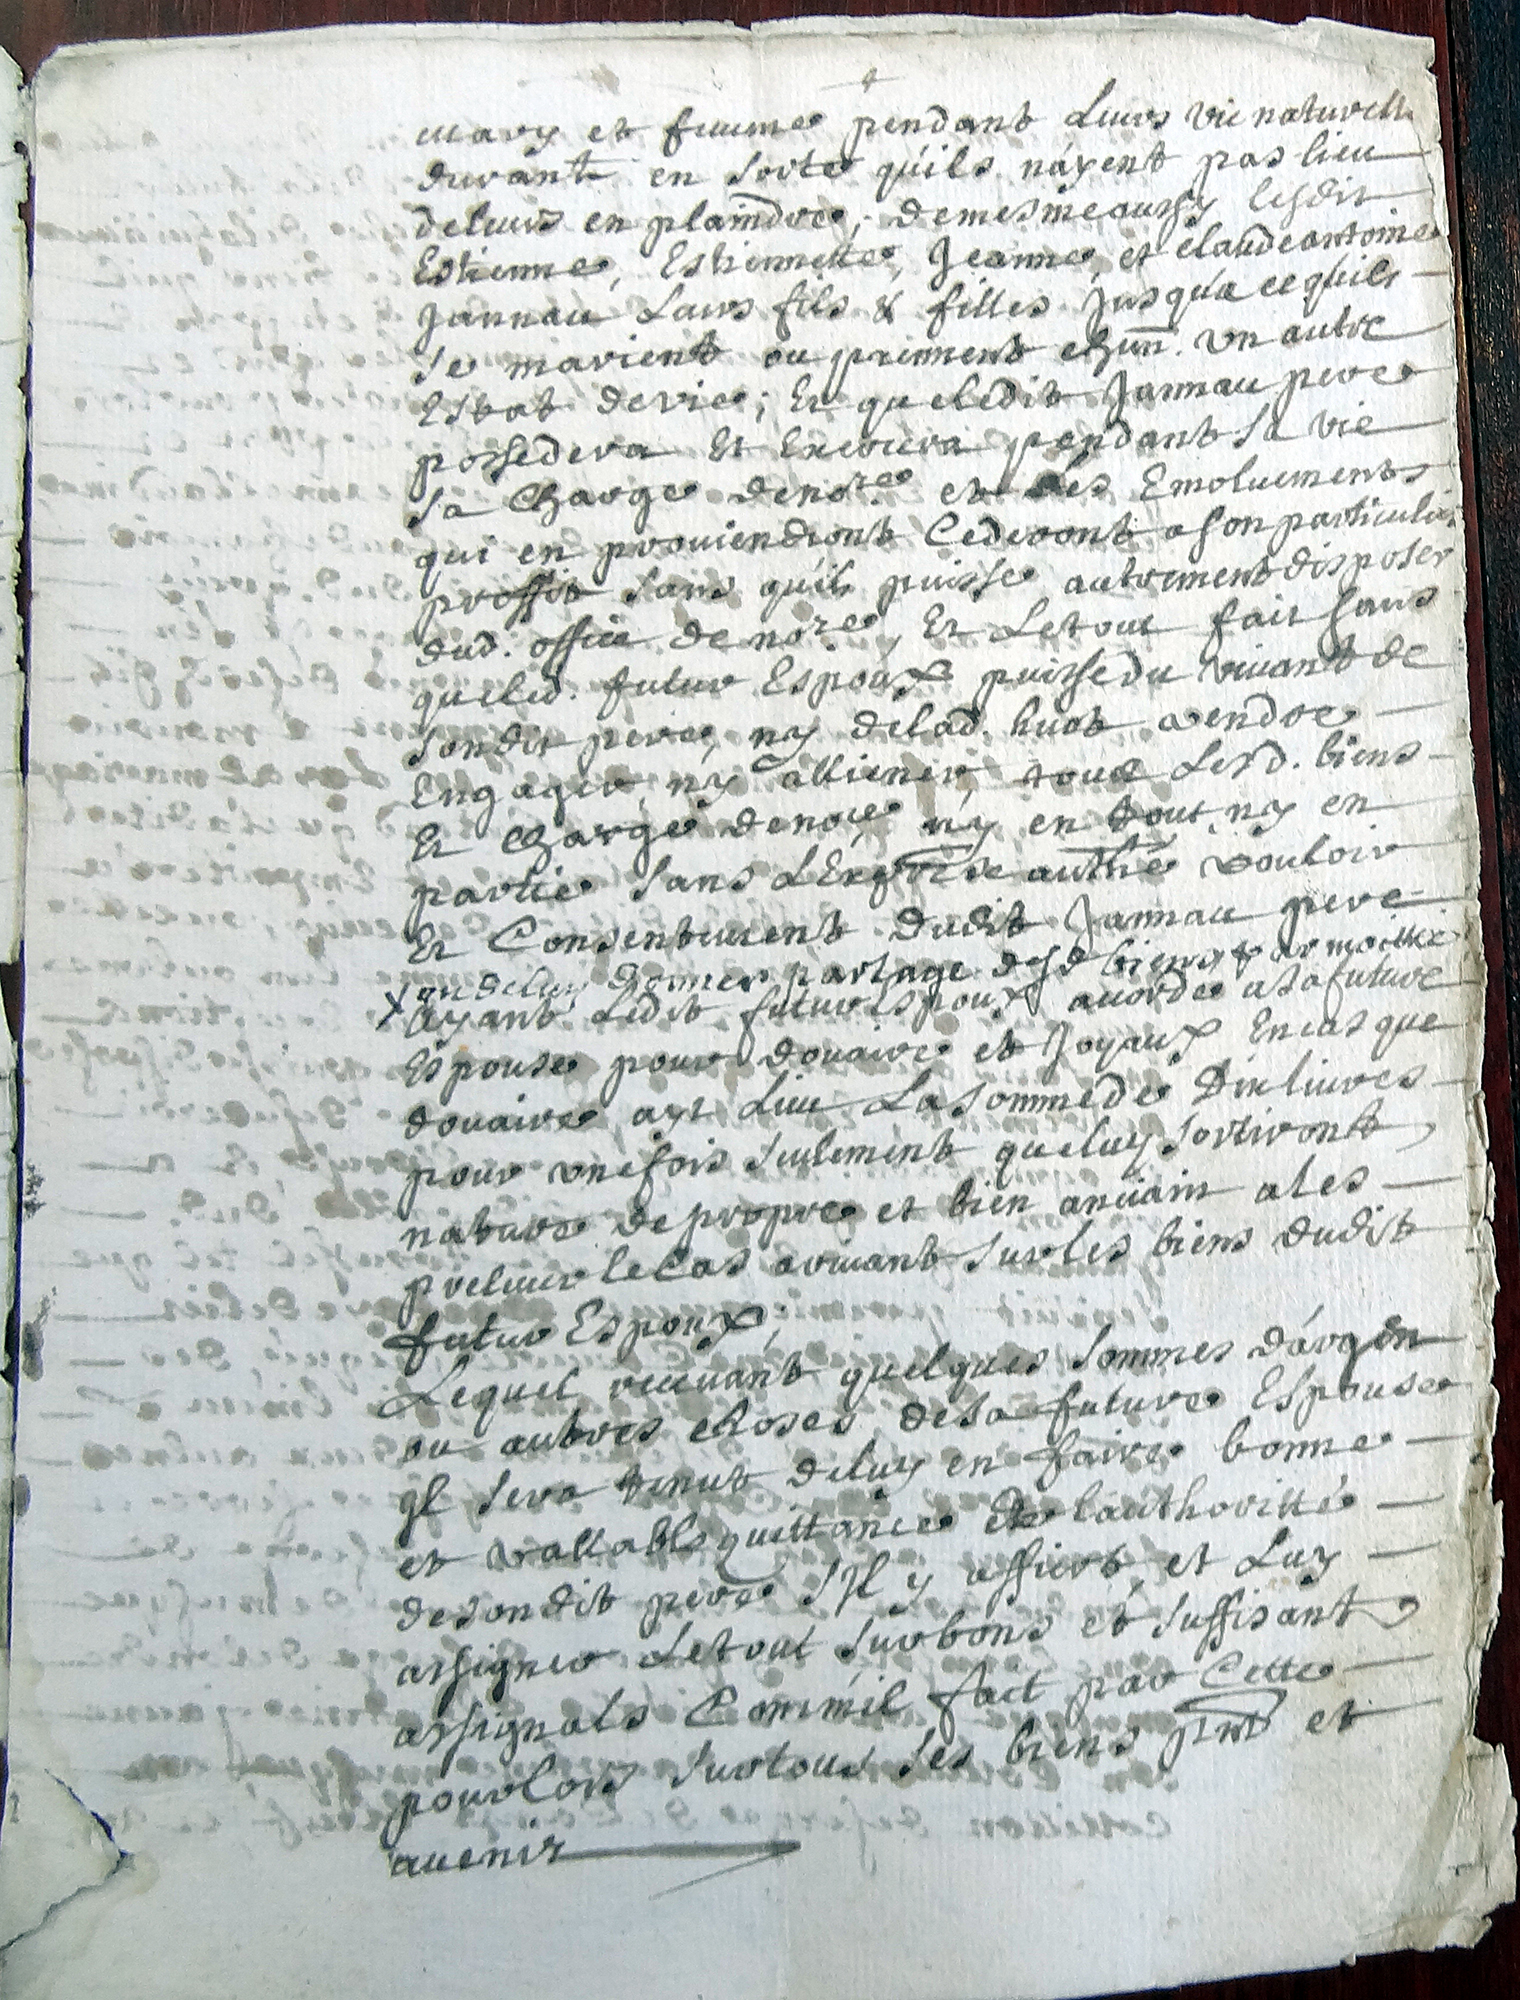 mary et femme pendant Leurs vie naturelle
durant en sorte qu'ils n'ayent pas lieu
deleurs en plaindre; demesmeaussy lesdit
Estienne, Estiennette, Jeanne, et claudeantoine
Jannau Leurs fils & filles Jusqua cequils
se marient ou prennent chūn. un autre
Estat devie; Et queledit Jannau pere
possedera Et Exercera pendant sa vie
sa Charge denore et les Emoluements
qui en prouiendront Cederont a son particulier
proffit sans qu'il puisse autrement disposer
dud. office denore, Et Letout fait sans
queled. futur Espoux puissedu viuant de
sondit pere, ny delad. huot vendre
Engager, ny alliener tous Lesd. biens
Et Charge denore ny en tout, ny en
partie sans L'Expresse authē vouloir
Et Consentement dudit Jannau pere
ou deluy donner partage desd biens par moittié
X Ayant Ledit futur Espoux acordé a sa future
Espouse pour douaire et Joyaux Encasque
douaire ayt Lieu Lasommede Dix liures
pour unefois seulement queluy sortiront
nature depropre et bien anciain a les
preleuer lecas ariuant surles biens dudit
futur Espoux,
Lequel receuant quelques sommes d'argen
ou autres choses desa future Espouse
Jl sera tenut deluy en faire bonne
et vallable quittance de lauthoritté
desondit pere s'Jl y affiert, et Luy
assigner Letout surbons et suffisant
assignals Comm'il fait par Cette
pourlors surtous ses biens pnt et
auenir